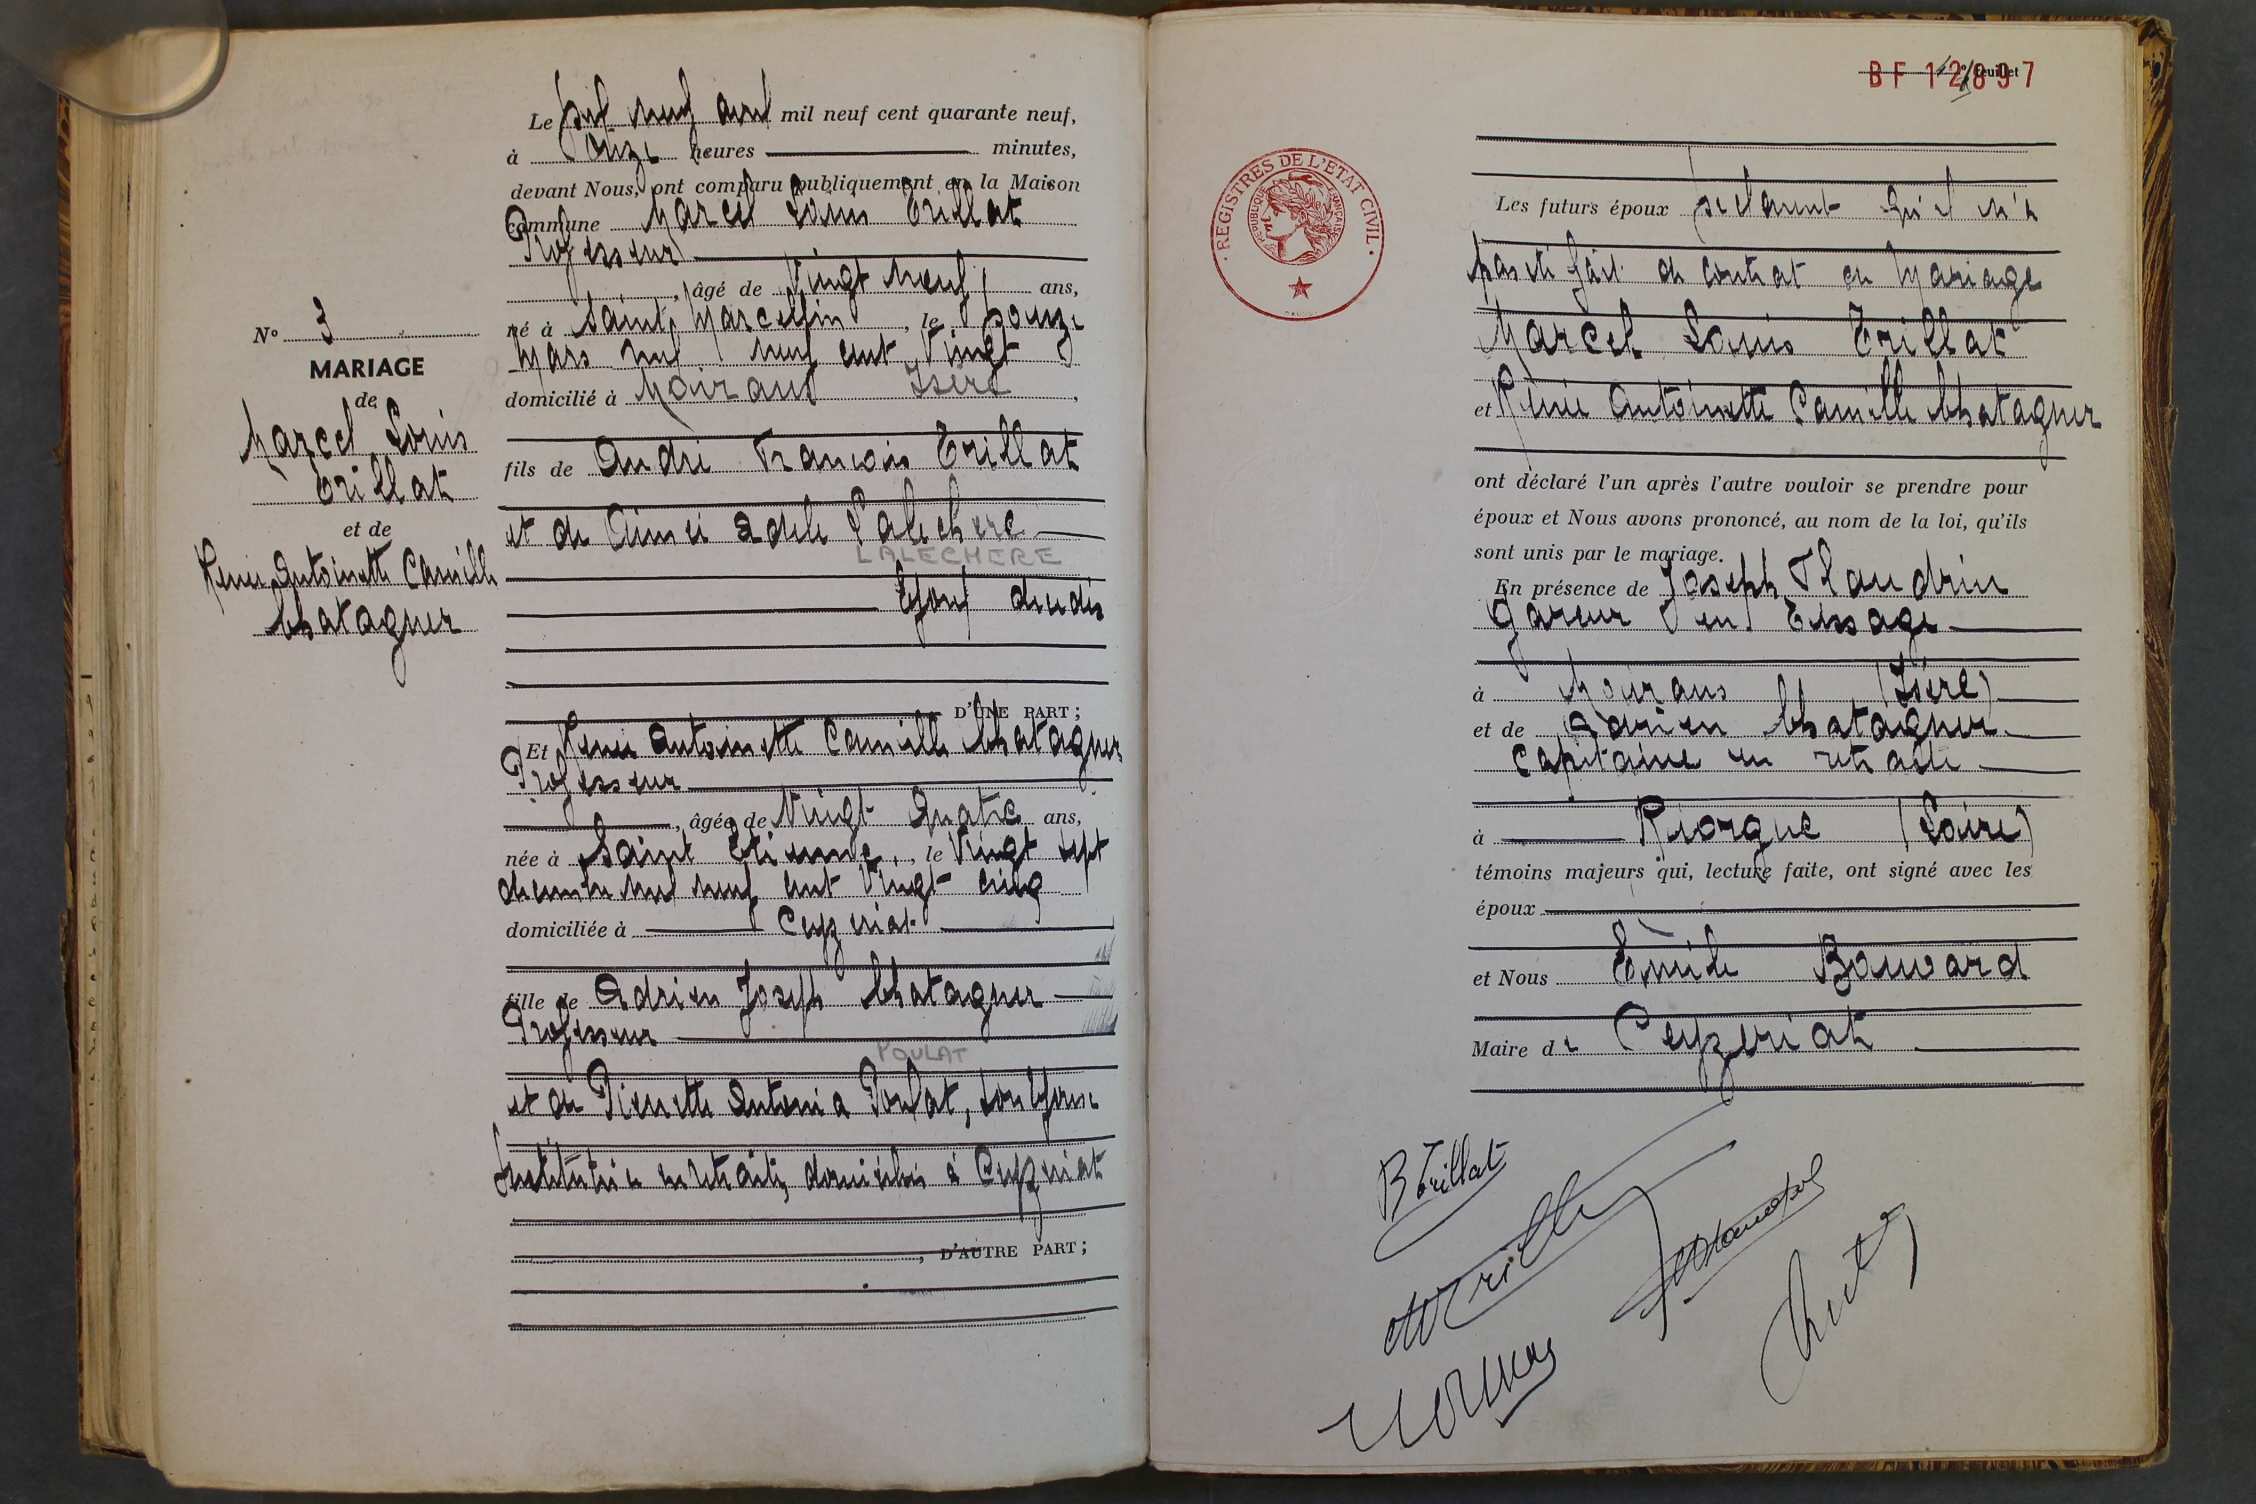 Le dix neuf avril mil neuf cent quarante neuf,
à onze heures minutes,
devant Nous, ont comparu publiquement en la Maison
commune Marcel Louis Trillat
Professeur
, âgé de Vingt neuf ans,
né à Saint Marcellin, le douze
Mars mil neuf cent Vingt
domicilié à Moirans Isère,
fils de André François Trillat
et de Aimée Adèle Lalechere
LALECHERE
Epoux décédés
D'UNE PART ;
N° 3
MARIAGE
de
Marcel Louis
Trillat
et de
Renée Antoinette Camille
Chatagner
Et Renée Antoinette Camille Chatagner
Professeur
, âgée de Vingt Quatre ans,
née à Saint Etienne, le Vingt sept
décembre mil neuf cent Vingt cinq
domiciliée à Ceyzeriat
fille de Adrien Joseph Chatagner
Professeur
POULAT
et de Pierrette Antonia Poulat, son Epouse
Institutrice en retraite, domiciliés à Ceyzeriat
, D'AUTRE PART ;
BF 12897
feuillet
REGISTRES DE L'ETAT CIVIL
REPUBLIQUE FRANÇAISE
Les futurs époux déclarent qu'il n'a
pas été fait de contrat de Mariage
Marcel Louis Trillat
et Renée Antoinette Camille Chatagner
ont déclaré l'un après l'autre vouloir se prendre pour
époux et Nous avons prononcé, au nom de la loi, qu'ils
sont unis par le mariage.
En présence de Joseph Flandrin
Gareur en Tissage
à Moirans (Isère)
et de Adrien Chatagner
Capitaine en retraite
à Riorgue (Loire)
témoins majeurs qui, lecture faite, ont signé avec les
époux
et Nous Emile Bouvard
Maire de Ceyzeriat
Trillat